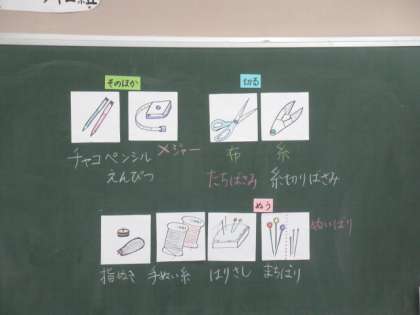 そのほか
切る
チャコペンシル
えんぴつ
メジャー
布
糸
たちばさみ
糸切りばさみ
ぬう
ぬいばり
指ぬき
手ぬい糸
はりさし
まちばり